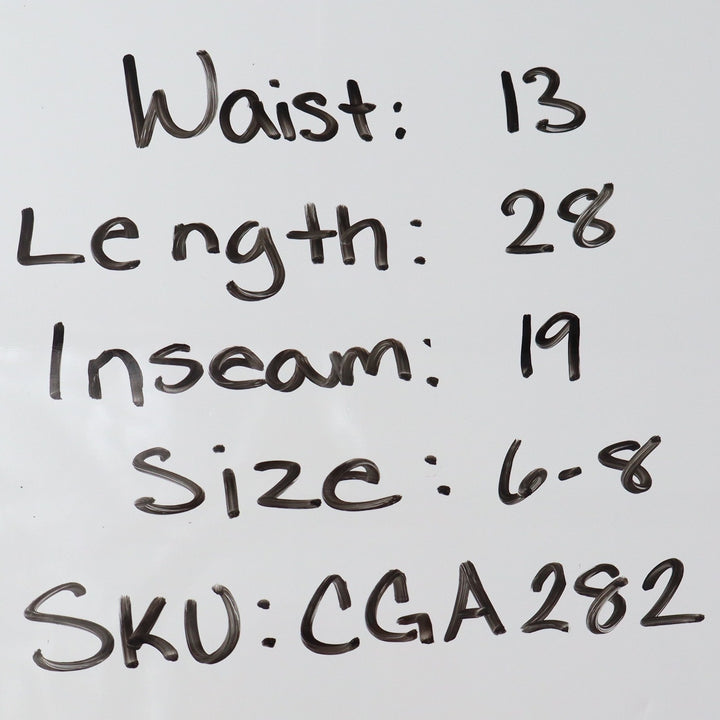 Waist: 13
Length: 28
Inseam: 19
Size: 6-8
SKU: CGA282